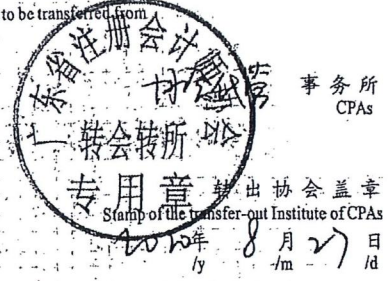 to be transferred from
广东省注册会计师协会
事务所
CPAs
转会转所
专用章
转出协会盖章
Stamp of the transfer-out Institute of CPAs
2020年 8月27日
/y /m /d